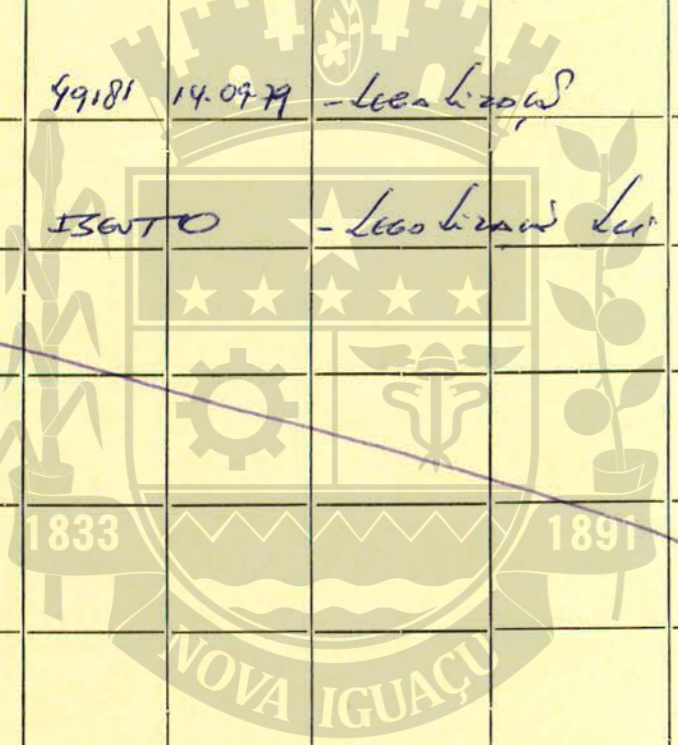 49181 14.09.79 - Legalização
ISENTO - Legalização Lei
1833 1891
NOVA IGUAÇU